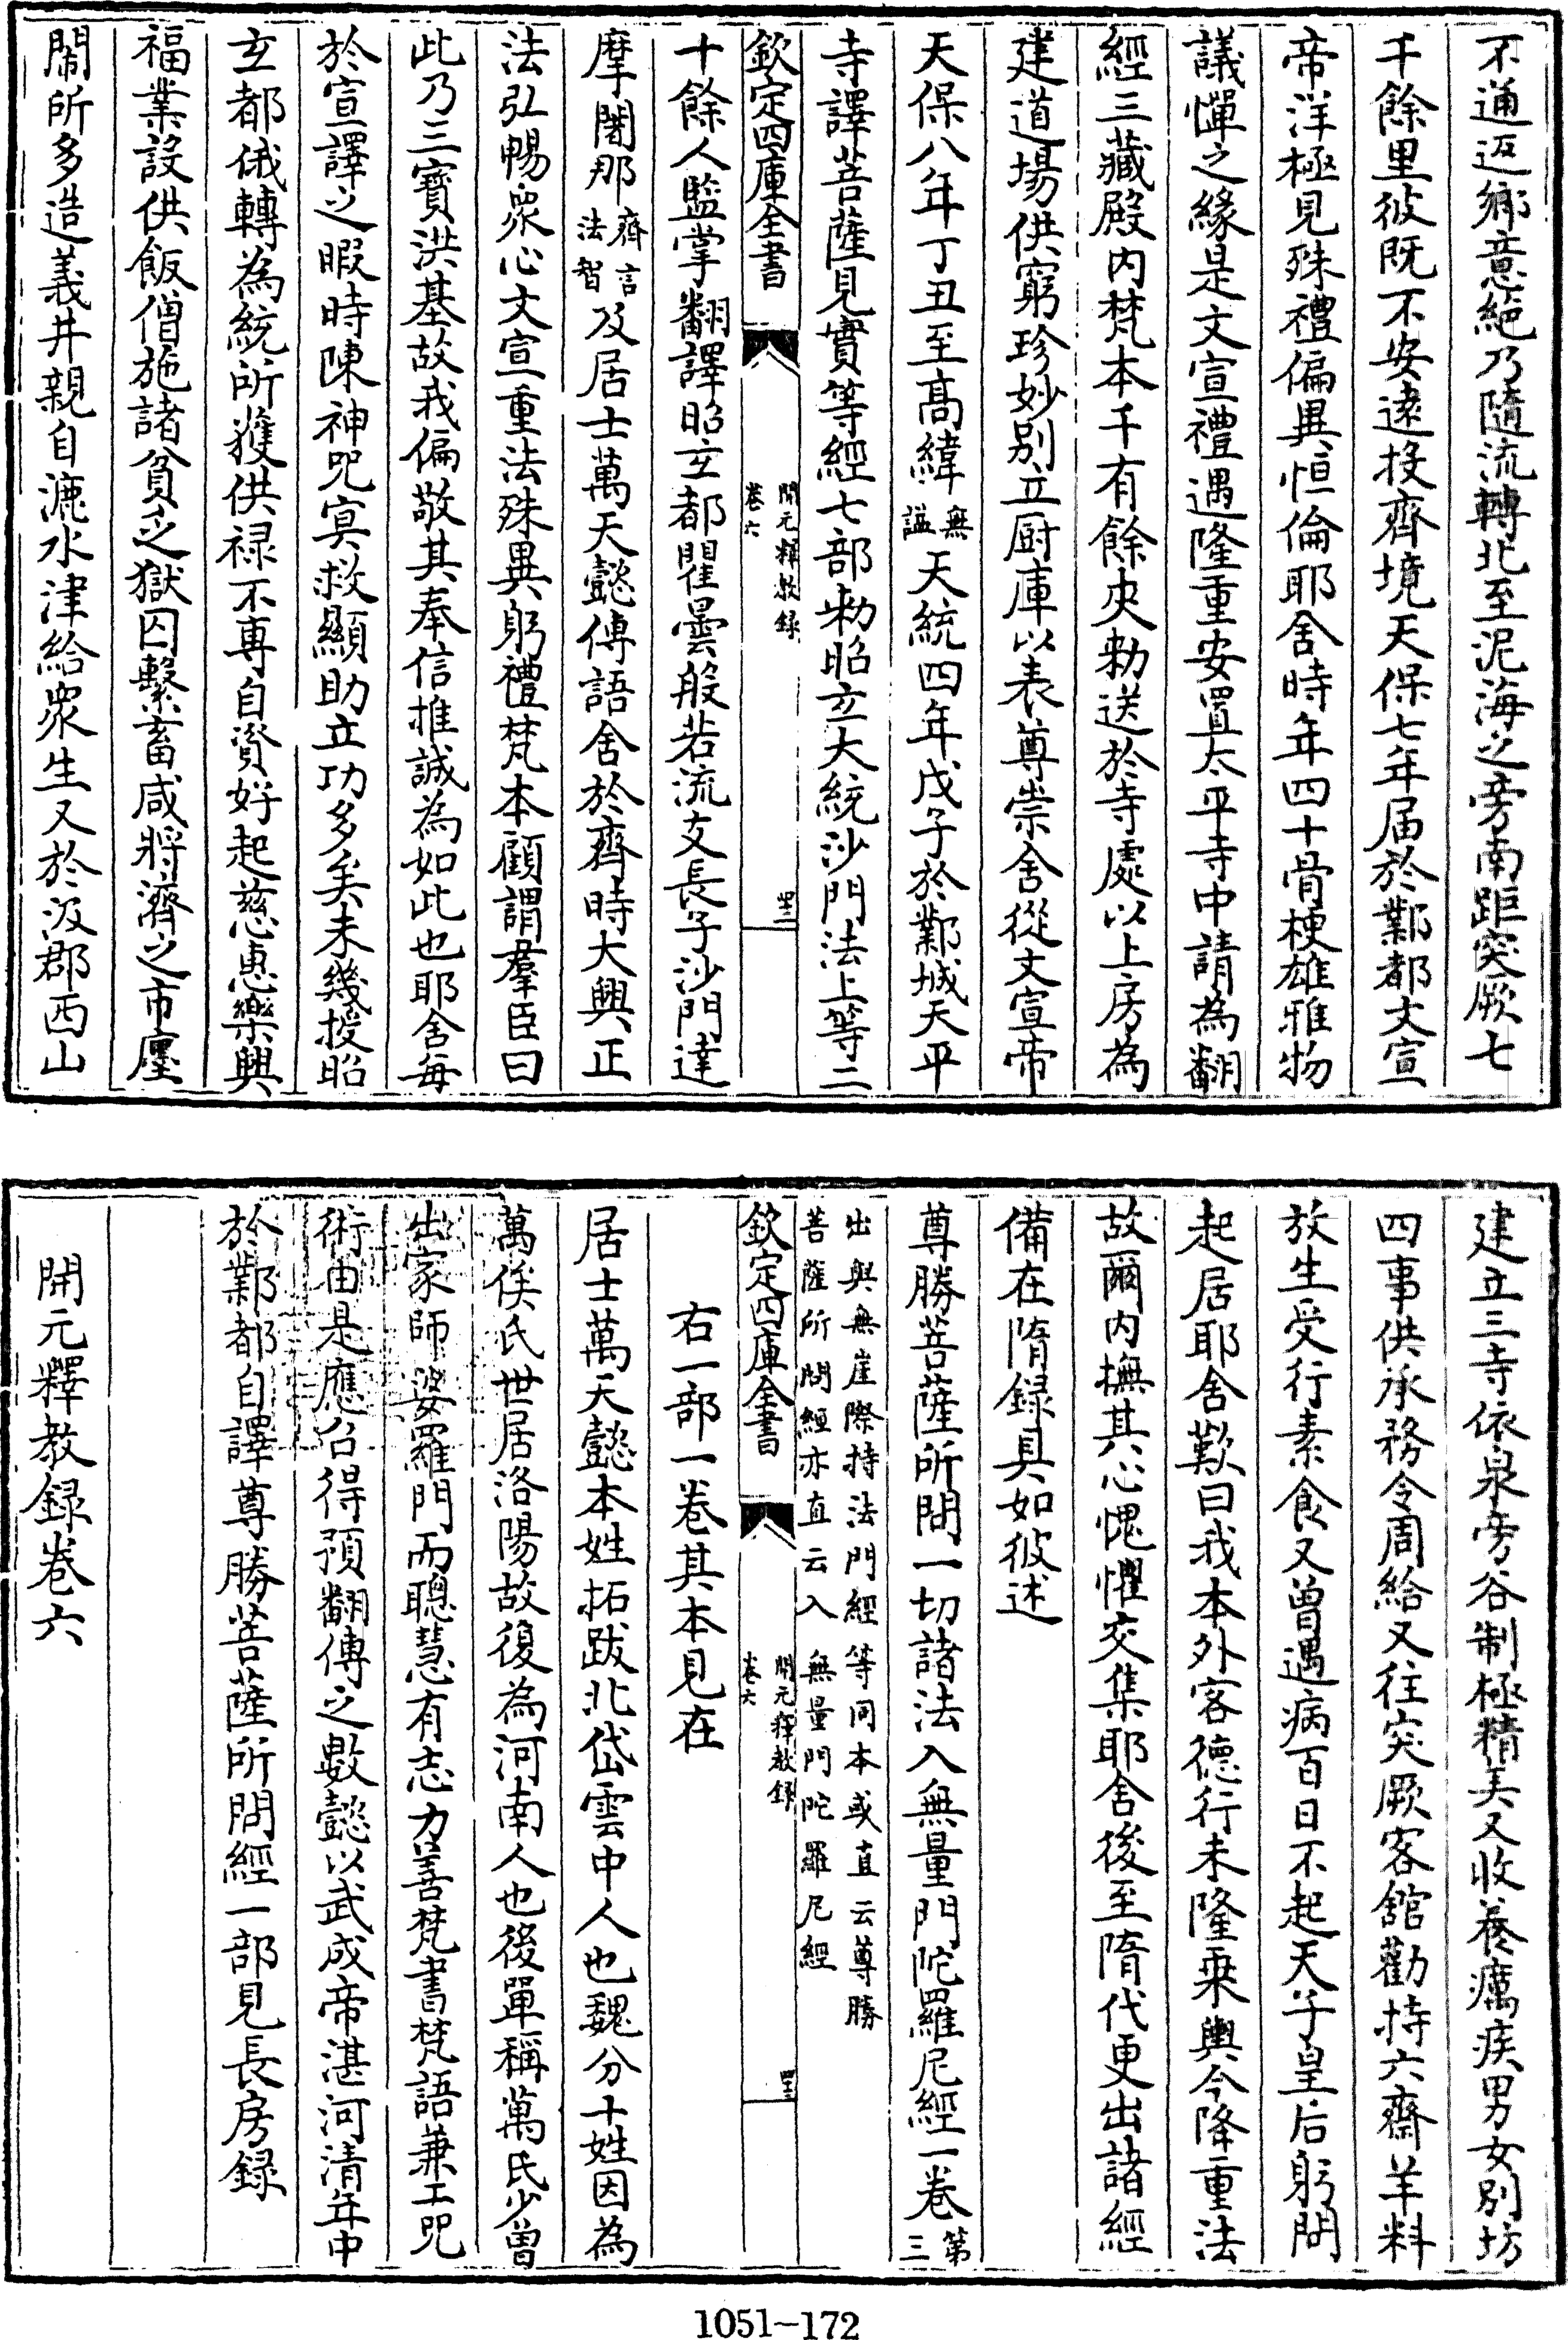 不通返鄉意絶乃隨流轉北至泥海之旁南距突厥七
千餘里彼既不安遠投齊境天保七年届於鄴都文宣
帝洋極見殊禮偏異恒倫耶舍時年四十骨梗雄雅物
議憚之緣是文宣禮遇隆重安置太平寺中請為翻
經三藏殿内梵本千有餘夾勅送於寺處以上房為
建道場供窮珍妙別立厨庫以表尊崇舍從文宣帝
天保八年丁丑至髙緯無諡天統四年戊子於鄴城天平
寺譯菩薩見實等經七部勅昭玄大統沙門法上等二
欽定四庫全書
開元釋教錄
卷六
四十二
十餘人監掌翻譯昭玄都瞿曇般若流支長子沙門達
摩闍那齊言法智及居士萬天懿傳語舍於齊時大興正
法弘暢衆心文宣重法殊異躬禮梵本顧謂羣臣曰
此乃三寶洪基故我偏敬其奉信推誠為如此也耶舍每
於宣譯之暇時陳神咒冥救顯助立功多矣未幾授昭
玄都俄轉為統所獲供禄不專自資好起慈惠樂興
福業設供飯僧施諸貧乏獄囚繫畜咸將濟之市廛
鬧所多造義井親自漉水津給衆生又於汲郡西山
建立三寺依泉旁谷制極精美又收養癘疾男女別坊
四事供承務令周給又往突厥客舘勸持六齋羊料
放生受行素食又曾遇病百日不起天子皇后躬問
起居耶舍歎曰我本外客德行未隆乗輿今降重法
故爾内撫其心愧懼交集耶舍後至隋代更出諸經
備在隋録具如彼述
尊勝菩薩所問一切諸法入無量門陀羅尼經一卷第三
出與無崖際持法門經等同本或直云尊勝
菩薩所問經亦直云入無量門陀羅尼經
欽定四庫全書
開元釋教錄
卷六
四十三
右一部一卷其本見在
居士萬天懿本姓拓跋北岱雲中人也魏分十姓因為
萬俟氏世居洛陽故復為河南人也後單稱萬氏少曾
出家師婆羅門而聰慧有志力善梵書梵語兼工咒
術由是應召得預翻傳之數懿以武成帝湛河清年中
於鄴都自譯尊勝菩薩所問經一部見長房録
開元釋教録卷六
1051-172